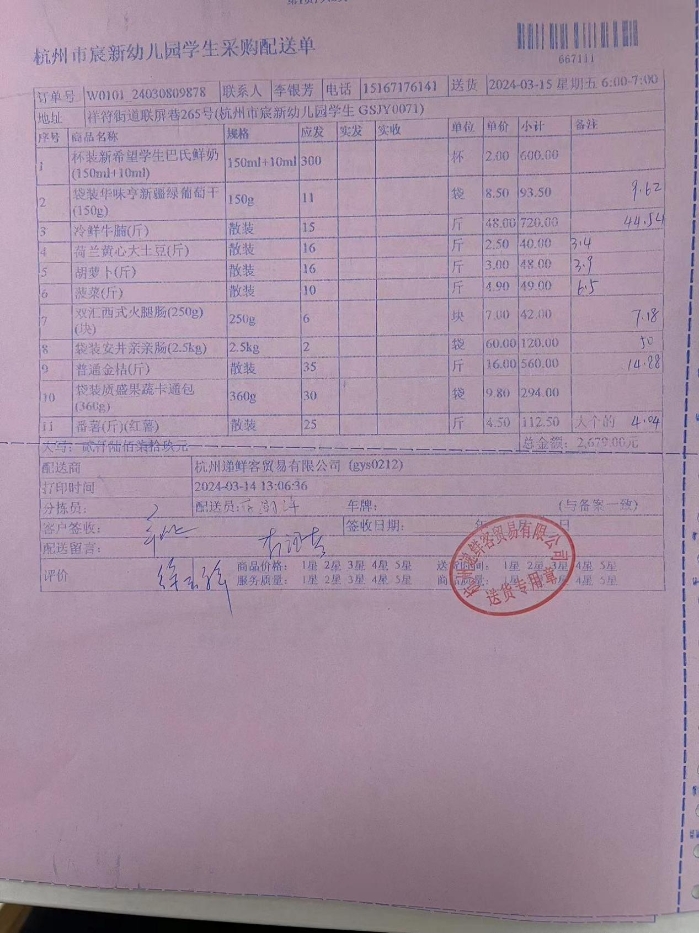 杭州市宸新幼儿园学生采购配送单
667111
订单号 W0101_24030809878 联系人 李银芳 电话 15167176141 送货 2024-03-15 星期五 6:00-7:00
地址 祥符街道联屏巷265号(杭州市宸新幼儿园学生 GSJY0071)
序号 商品名称 规格 应发 实发 实收 单位 单价 小计 备注
1 杯装新希望学生巴氏鲜奶(150ml+10ml) 150ml+10ml 300 杯 2.00 600.00
2 袋装华味亨新疆绿葡萄干(150g) 150g 11 袋 8.50 93.50 9.62
3 冷鲜牛腩(斤) 散装 15 斤 48.00 720.00 44.54
4 荷兰黄心大土豆(斤) 散装 16 斤 2.50 40.00 3.4
5 胡萝卜(斤) 散装 16 斤 3.00 48.00 3.9
6 菠菜(斤) 散装 10 斤 4.90 49.00 6.5
7 双汇西式火腿肠(250g)(块) 250g 6 块 7.00 42.00 7.18
8 袋装安井亲亲肠(2.5kg) 2.5kg 2 袋 60.00 120.00 50
9 普通金桔(斤) 散装 35 斤 16.00 560.00 14.88
10 袋装质盛果蔬卡通包(360g) 360g 30 袋 9.80 294.00
11 番薯(斤)(红薯) 散装 25 斤 4.50 112.50 大个的 4.04
大写：贰仟陆佰柒拾玖元 总金额：2,679.00元
配送商 杭州递鲜客贸易有限公司 (gys0212)
打印时间 2024-03-14 13:06:36
分拣员： 配送员： 车牌： (与备案一致)
客户签收： 签收日期： 年 日
配送留言：
评价 商品价格： 1星 2星 3星 4星 5星 送货时间： 1星 2星 3星 4星 5星
服务质量： 1星 2星 3星 4星 5星 商品质量： 1星 2星 3星 4星 5星
杭州递鲜客贸易有限公司
送货专用章